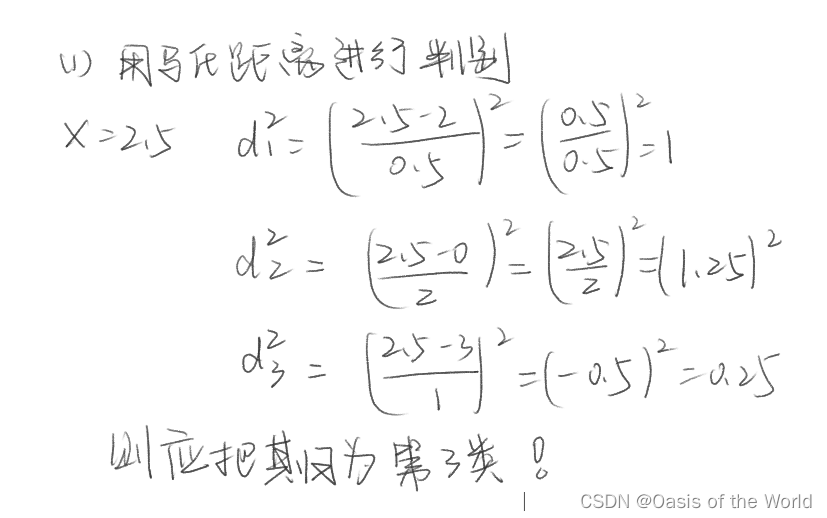 (1) 用马氏距离进行判别
X=2.5 d₁²=(2.5-2/0.5)²=(0.5/0.5)²=1
d₂²=(2.5-0/2)²=(2.5/2)²=(1.25)²
d₃²=(2.5-3/1)²=(-0.5)²=0.25
则应把其归为第3类!
CSDN @Oasis of the World